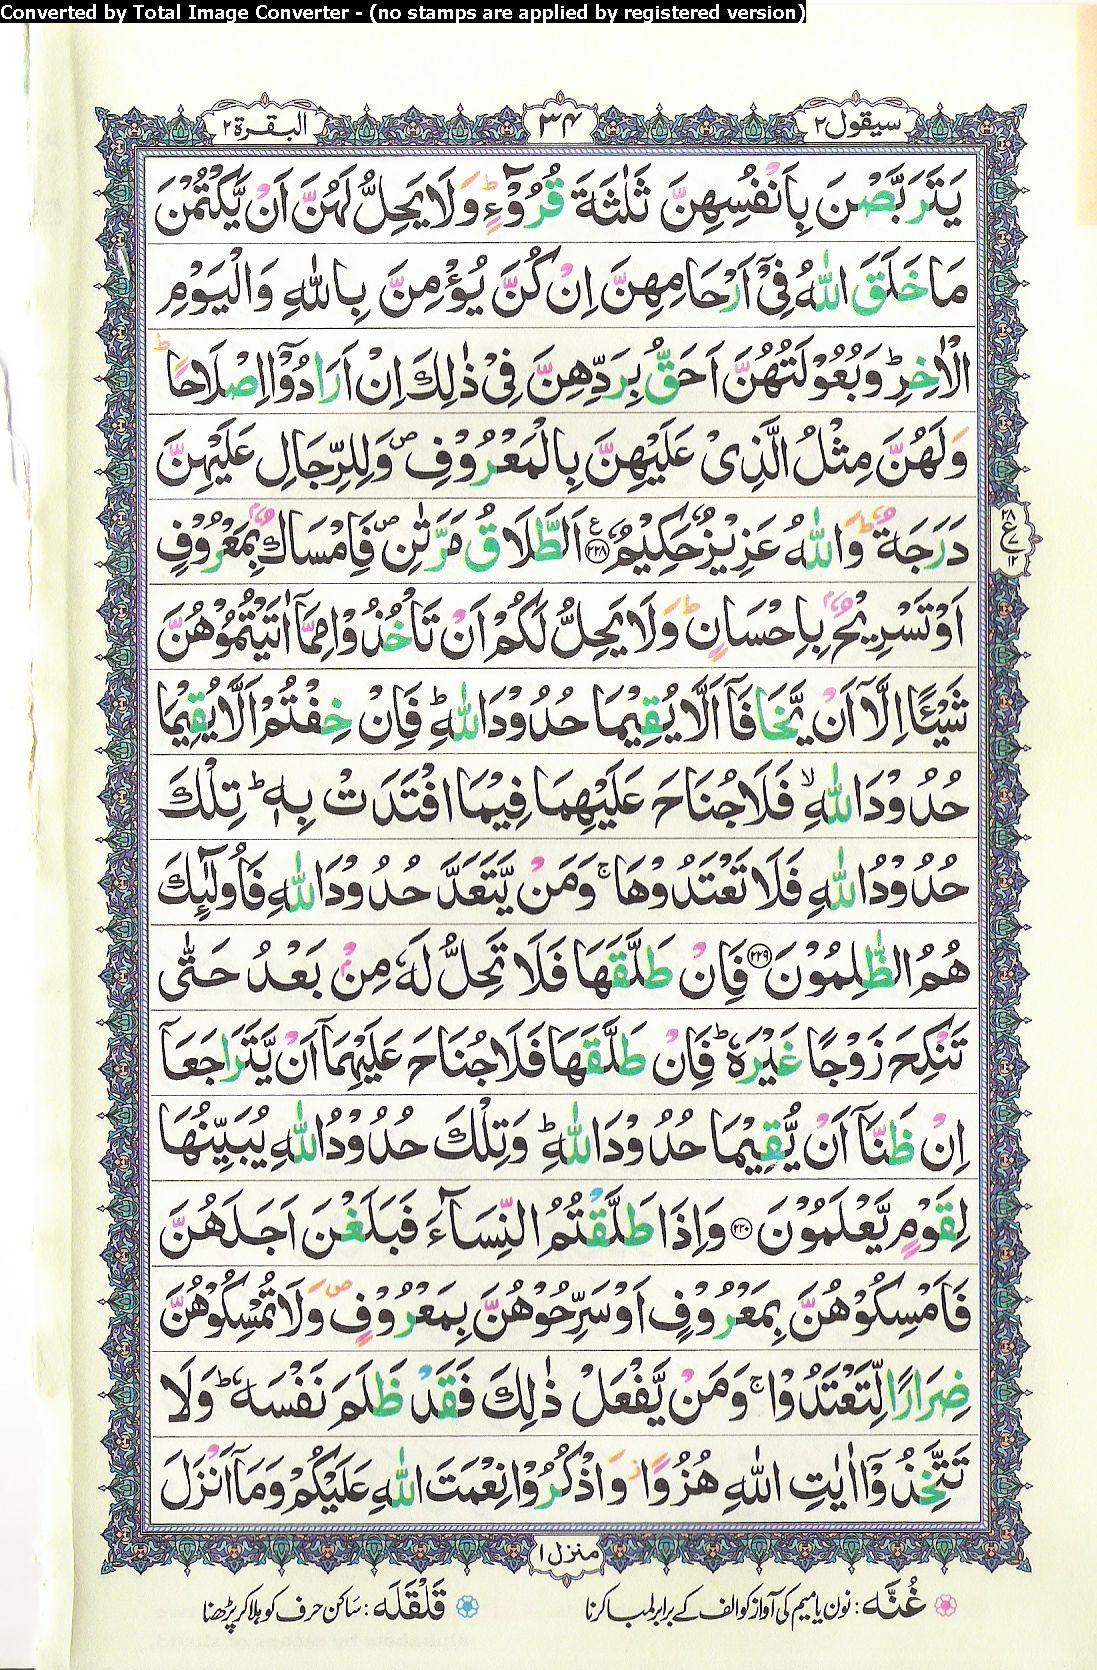 Converted by Total Image Converter - (no stamps are applied by registered version)
سيقول ٢
٣٤
البقرة ٢
يَتَرَبَّصْنَ بِاَنْفُسِهِنَّ ثَلٰثَةَ قُرُوْٓءٍ ؕ وَلَا يَحِلُّ لَهُنَّ اَنْ يَّكْتُمْنَ
مَا خَلَقَ اللّٰهُ فِىْٓ اَرْحَامِهِنَّ اِنْ كُنَّ يُؤْمِنَّ بِاللّٰهِ وَالْيَوْمِ
الْاٰخِرِ ؕ وَبُعُوْلَتُهُنَّ اَحَقُّ بِرَدِّهِنَّ فِىْ ذٰلِكَ اِنْ اَرَادُوْٓا اِصْلَاحًا ؕ
وَلَهُنَّ مِثْلُ الَّذِىْ عَلَيْهِنَّ بِالْمَعْرُوْفِ ۪ وَلِلرِّجَالِ عَلَيْهِنَّ
دَرَجَةٌ ؕ وَاللّٰهُ عَزِيْزٌ حَكِيْمٌ ﴿٢٢٨﴾ اَلطَّلَاقُ مَرَّتٰنِ ۪ فَاِمْسَاكٌۢ بِمَعْرُوْفٍ
اَوْ تَسْرِيْحٌۢ بِاِحْسَانٍ ؕ وَلَا يَحِلُّ لَكُمْ اَنْ تَاْخُذُوْا مِمَّآ اٰتَيْتُمُوْهُنَّ
شَيْـًٔا اِلَّآ اَنْ يَّخَافَآ اَلَّا يُقِيْمَا حُدُوْدَ اللّٰهِ ؕ فَاِنْ خِفْتُمْ اَلَّا يُقِيْمَا
حُدُوْدَ اللّٰهِ ۙ فَلَا جُنَاحَ عَلَيْهِمَا فِيْمَا افْتَدَتْ بِهٖ ؕ تِلْكَ
حُدُوْدُ اللّٰهِ فَلَا تَعْتَدُوْهَا ۚ وَمَنْ يَّتَعَدَّ حُدُوْدَ اللّٰهِ فَاُولٰٓئِكَ
هُمُ الظّٰلِمُوْنَ ﴿٢٢٩﴾ فَاِنْ طَلَّقَهَا فَلَا تَحِلُّ لَهٗ مِنْۢ بَعْدُ حَتّٰى
تَنْكِحَ زَوْجًا غَيْرَهٗ ؕ فَاِنْ طَلَّقَهَا فَلَا جُنَاحَ عَلَيْهِمَآ اَنْ يَّتَرَاجَعَآ
اِنْ ظَنَّآ اَنْ يُّقِيْمَا حُدُوْدَ اللّٰهِ ؕ وَتِلْكَ حُدُوْدُ اللّٰهِ يُبَيِّنُهَا
لِقَوْمٍ يَّعْلَمُوْنَ ﴿٢٣٠﴾ وَاِذَا طَلَّقْتُمُ النِّسَآءَ فَبَلَغْنَ اَجَلَهُنَّ
فَاَمْسِكُوْهُنَّ بِمَعْرُوْفٍ اَوْ سَرِّحُوْهُنَّ بِمَعْرُوْفٍ ۪ وَلَا تُمْسِكُوْهُنَّ
ضِرَارًا لِّتَعْتَدُوْا ۚ وَمَنْ يَّفْعَلْ ذٰلِكَ فَقَدْ ظَلَمَ نَفْسَهٗ ؕ وَلَا
تَتَّخِذُوْٓا اٰيٰتِ اللّٰهِ هُزُوًا ز وَّاذْكُرُوْا نِعْمَتَ اللّٰهِ عَلَيْكُمْ وَمَآ اَنْزَلَ
٢٨
ع
٧
١٢
منزل ١
غُنَّه : نون یا میم کی آواز کو الف کے برابر لمبا کرنا
قَلْقَلَه : ساکن حرف کو ہلا کر پڑھنا